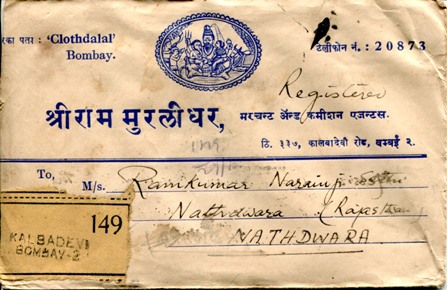 रका पता : 'Clothdalal'
Bombay.
टेलीफोन नं. : 20873
Registered
श्रीराम मुरलीधर,
मरचन्ट ॲन्ड कमीशन एजन्टस.
ठि. ३३७, कालबादेवी रोड, बम्बई २.
To,
M/s. Ramkumar Narainji
Nathdwara (Rajasthan
NATHDWARA
149
KALBADEVI
BOMBAY-2